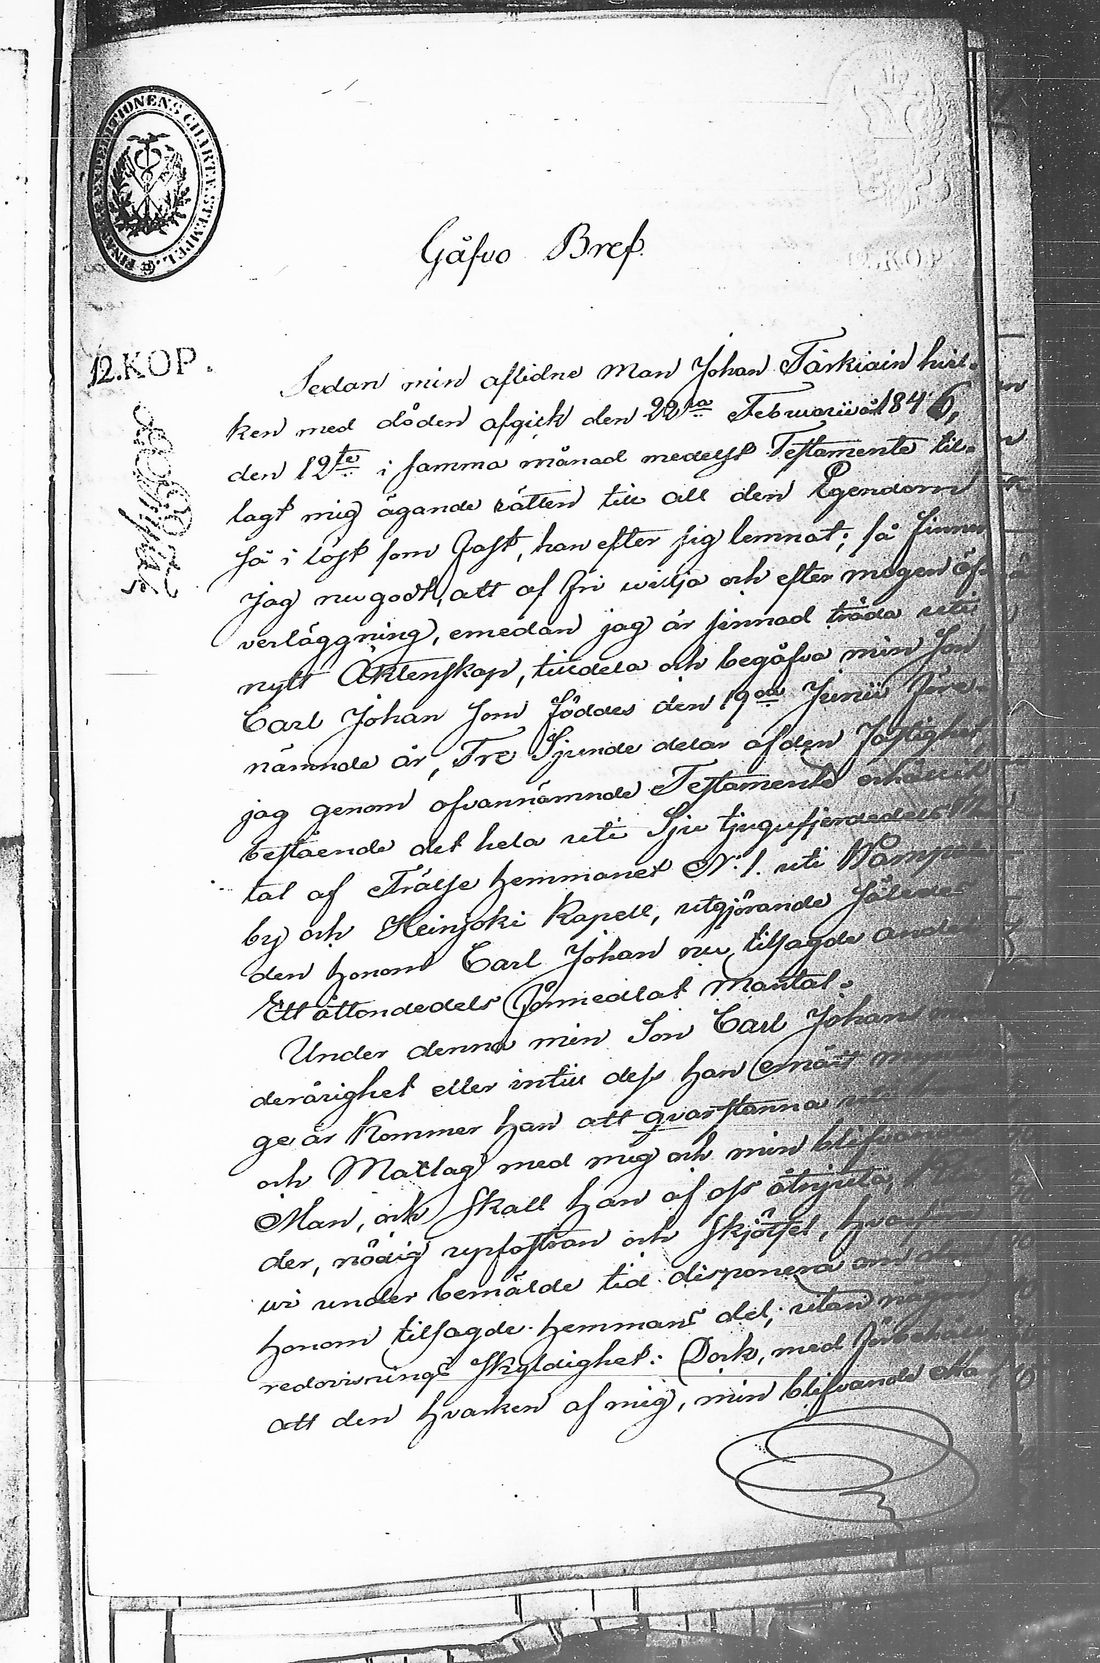 FINANCE EXPEDITIONENS CHARTÆ STEMPEL.
12.KOP.
12.KOP.
Gåfvo Bref.
Sedan min aflidne Man Johan Tärkiäin hvil-
ken med döden afgick den 22ra Februarii år 1846,
den 12te i samma månad medelst Testamente til-
lagt mig ägande rätten till all den Egendom
så i löst som fast, han efter sig lemnat; så finner
Jag nu godt, att af fri wilja och efter mogen öf-
verläggning, emedan jag är sinnad träda uti
nytt Äktenskap, tilldela och begåfva min Son
Carl Johan som föddes den 19de Junii före-
nämnde år, Tre Sjunde delar af den fastighet
jag genom ofvannämnde Testamente erhållit
bestående det hela uti Sju tjugufjerdedels
tal af Frälse hemmanet N:o 1. uti
by och Heinjoki Kapell, utgjörande således
den honom Carl Johan nu tilsagde andel
Ett åttondedels oförmedlat Mantal.
Under denna min Son Carl Johans
derårighet eller intill dess han ernått
ge år Kommer han att qvarstanna uti
och Matlag med mig och min blifvande
Man, och skall han af oss åtnjuta,
der, nödig upfostran och skjötsel, hvarföre
wi under bemälde tid disponera om
honom tilsagde hemmans del, utan någon
redovisnings skyldighet: Dock, med förbehåll
att den hvarken af mig, min blifvande Man